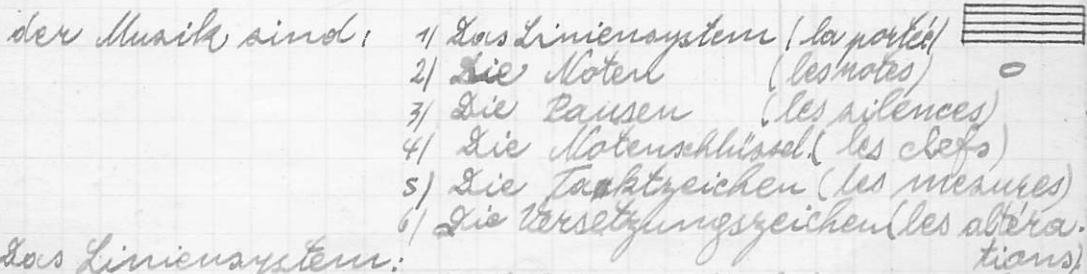 der Musik sind: 1) Das Liniensystem (la portée)
2) Die Noten (les notes)
3) Die Pausen (les silences)
4) Die Notenschlüssel (les clefs)
5) Die Taktzeichen (les mesures)
6) Die Versetzungszeichen (les altéra-
Das Liniensystem: tions)